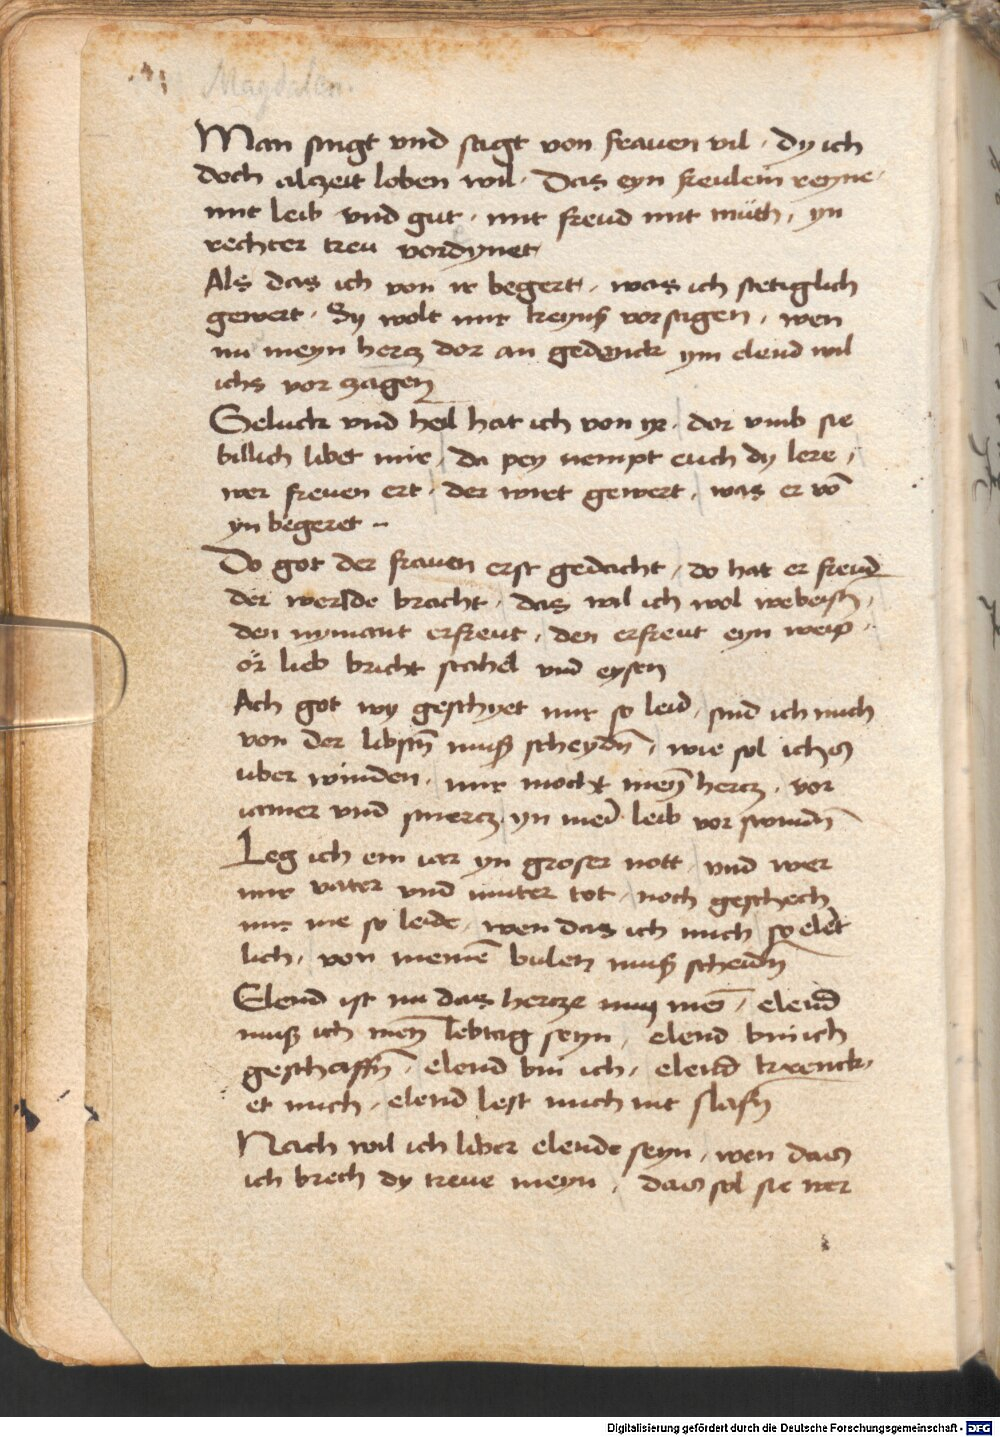 Magdalen.
Man singt vnd sagt von frauen vil · dy ich
doch alczeit loben wil · Das eyn freulein reyne ·
mit leib vnd gut · mit freud mit muth · yn
rechter treu vordynet
Als das ich von ir begert · was ich stetiglich
gewert · Sy wolt mir keyns vorsagen · wen
nu meyn hercz dor an gedenck ym elend wil
ichs vor zagen
Geluck vnd heil hat ich von yr · dor vmb sie
billich libet mir · da pey nempt euch dy lere ·
wer freuen ert · der wirt gewert · was er vō
yn begeret ··
Do got der frauen erst gedacht · do hat er freud
der werlde bracht · das wil ich wol weweisen ·
den nymant erfreut · den erfreut eyn weip ·
ör lieb bricht stahel vnd eysen
Ach got wy geschyet mir so leid · sind ich mich
von der libstn̄ muß scheydn̄ · wie sol ichs
uber winden · mir mocht meyn̄ hercz · vor
iamer vnd smercz yn mei᷑ leib vor swindn̄
Leg ich ein iar yn groser nott · vnd wer
mir vater vnd muter tot · noch geschech
mir nie so leide · wen das ich mich so elēt
lich · von meinē bulen muß scheidn
Elend ist nu das hercze mey · elend
muß ich meyn̄ lebtag seyn · elend bin ich
geschaffn̄ · elend bin ich · elend krenck ·
et mich · elend lest mich nit slafn
Nach wil ich liber elende seyn · wen das
ich brech dy treue meyn · das sol sie wer
Digitalisierung gefördert durch die Deutsche Forschungsgemeinschaft - DFG